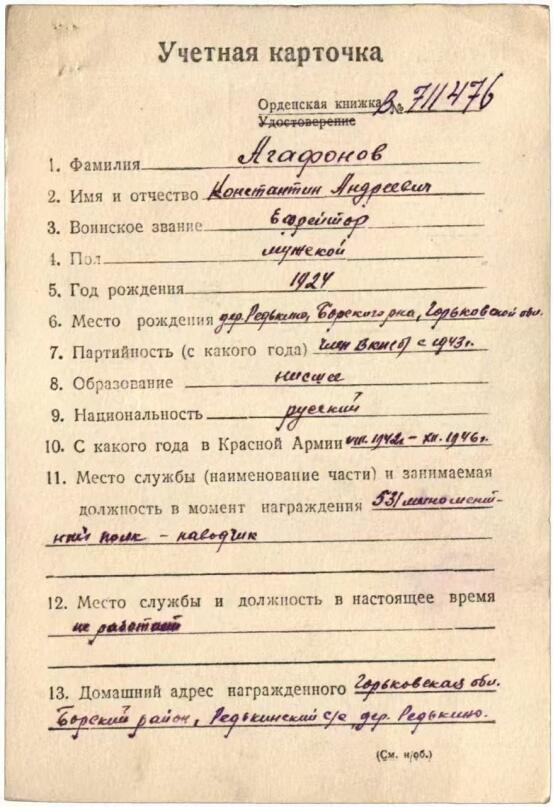 Учетная карточка
Орденская книжка В № 711476
Удостоверение
1. Фамилия Агафонов
2. Имя и отчество Константин Андреевич
3. Воинское звание Ефрейтор
4. Пол мужской
5. Год рождения 1924
6. Место рождения дер. Редькино, Борского р-на, Горьковской обл.
7. Партийность (с какого года) член ВКП(б) с 1943 г.
8. Образование низшее
9. Национальность русский
10. С какого года в Красной Армии VIII.1942 г. – XII.1946 г.
11. Место службы (наименование части) и занимаемая
должность в момент награждения 531 миномет-
ный полк – наводчик
12. Место службы и должность в настоящее время
не работает
13. Домашний адрес награжденного Горьковская обл.
Борский район, Редькинский с/с, дер. Редькино.
(См. н/об.)